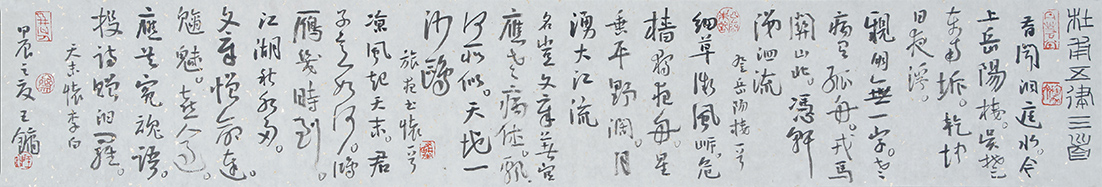 杜甫五律三首
昔聞洞庭水今
上岳陽樓。吳楚
東南坼。乾坤
日夜浮。
親朋無一字。老
病有孤舟。戎馬
關山北。憑軒
涕泗流
登岳陽樓一首
細草微風岸。危
檣獨夜舟。星
垂平野闊。月
湧大江流
名豈文章著官
應老病休。飄飄
何所似。天地一
沙鷗
旅夜書懷一首
涼風起天末。君
子意如何。鴻
雁幾時到。
江湖秋水多
文章憎命達。
魑魅。喜人過。
應共冤魂語。
投詩贈汨羅。
天末懷李白
甲辰之夏王鏞